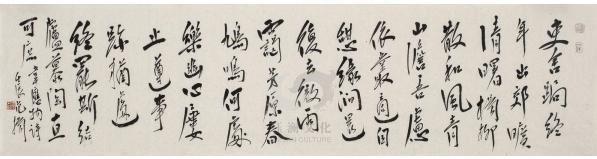 吏舍跼終
年出郊曠
清曙楊柳
散和風青
山澹吾慮
依叢適自
憩緣澗還
復去微雨
靄芳原春
鳩鳴何處
樂幽心屢
止遵事
跡猶遽
終罷斯結
廬慕陶直
可庶 韋應物詩